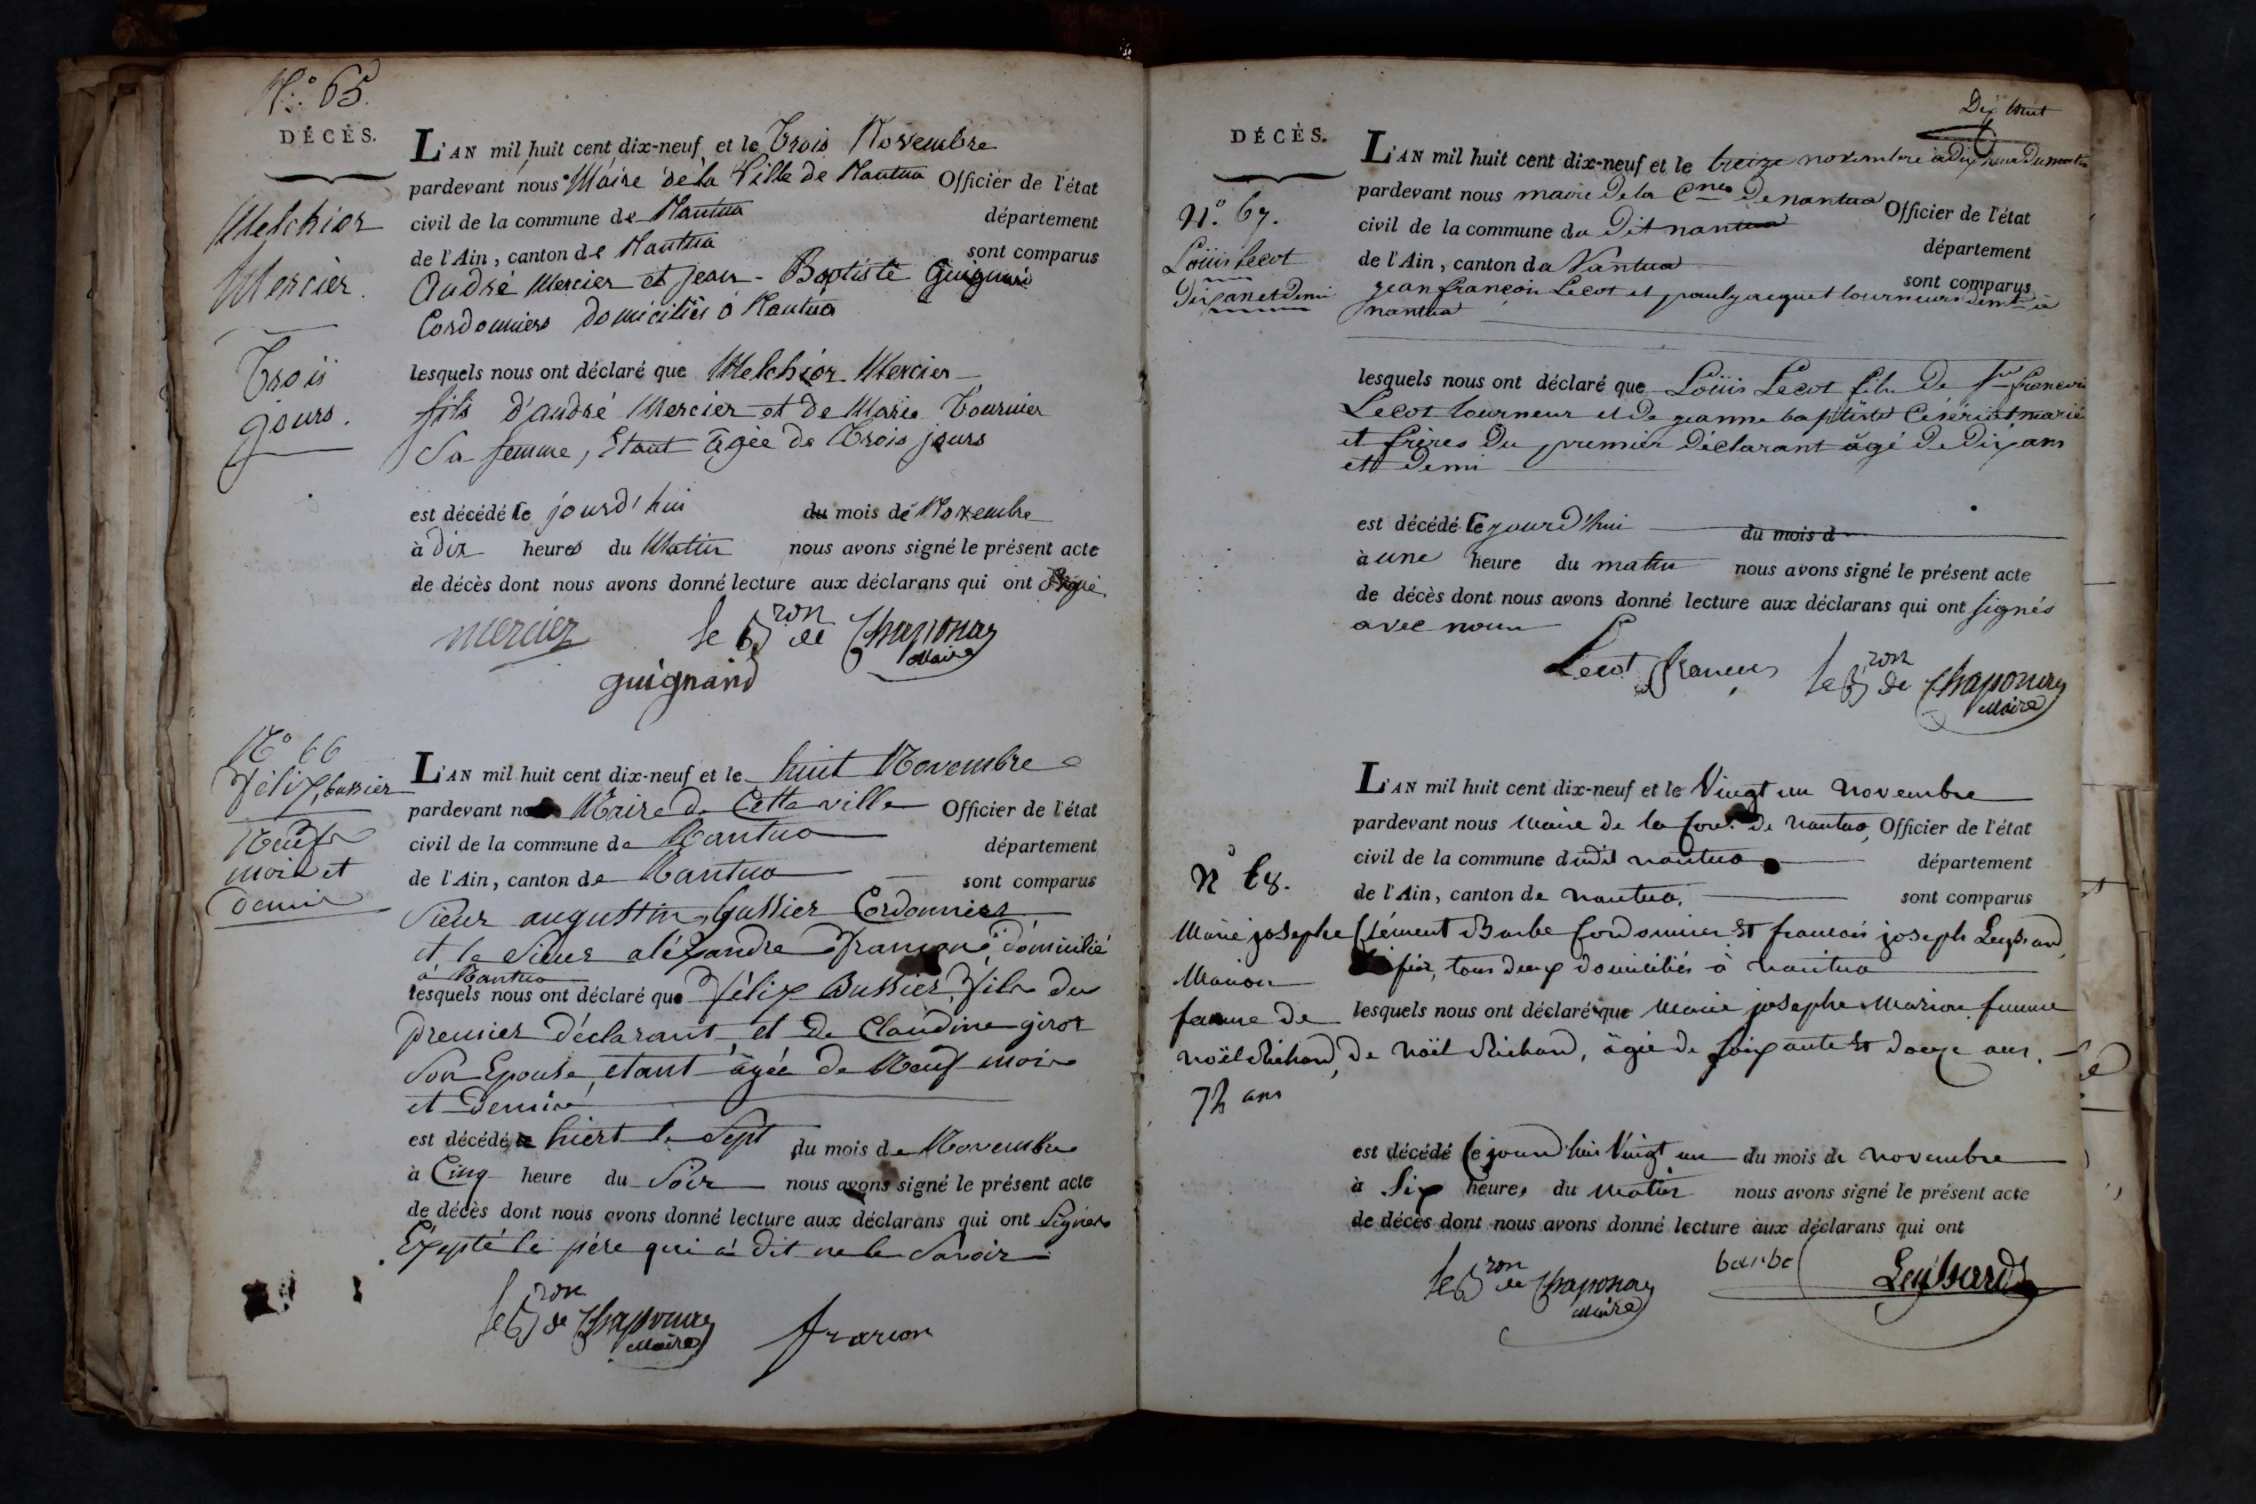 N.° 65.
DÉCÈS.
Melchior
Mercier.
Trois
jours.
L'AN mil huit cent dix-neuf et le Trois Novembre
pardevant nous Maire de la Ville de Nantua Officier de l'état
civil de la commune de Nantua département
de l'Ain, canton de Nantua sont comparus
André Mercier et jean-Baptiste Guignard
Cordonniers domiciliés à Nantua
lesquels nous ont déclaré que Melchior Mercier
fils d'andré Mercier et de Marie Tournier
Sa femme, Etant agée de Trois jours
est décédé le jourd'hui du mois de Novembre
à Dix heures du Matin nous avons signé le présent acte
de décès dont nous avons donné lecture aux déclarans qui ont Signé.
mercier le Bron de Chaponay
Maire
guignard
N° 66
félix bussier
Neuf
mois et
demie
L'AN mil huit cent dix-neuf et le huit Novembre
pardevant nous Maire de Cette ville Officier de l'état
civil de la commune de Nantua département
de l'Ain, canton de Nantua sont comparus
Sieur augustin bussier Cordonnier
et le Sieur aléxandre domicilié
à Nantua
lesquels nous ont déclaré que félix Bussier, fils du
premier déclarant, et de Claudine girot
Son Epouse, etant agée de Neuf mois
et demie
est décédé hiert le Sept du mois de Novembre
à Cinq heure du Soir nous avons signé le présent acte
de décès dont nous avons donné lecture aux déclarans qui ont Signer
Exepté le père qui a dit ne le Savoir
le Bron de Chaponay
Maire
frarion
Dix huit
DÉCÈS.
N.° 67.
Loüis Lecot
Dix an et Demi
L'AN mil huit cent dix-neuf et le treize novembre à Dix heur Du matin
pardevant nous maire de la Cne De nantua Officier de l'état
civil de la commune du Dit nantua département
de l'Ain, canton da Nantua sont comparus
jean françois Lecot et jacquet tourneurs à
nantua
lesquels nous ont déclaré que Loüis Lecot fils De Jn françois
Lecot tourneur et De jeanne baptiste mariés
et frères Du premier Déclarant âgé De Dix ans
et Demi
est décédé le jourd'hui du mois d
à une heure du matin nous avons signé le présent acte
de décès dont nous avons donné lecture aux déclarans qui ont signés
avec nous
Lecot françois le Bron de Chaponay
Maire
N° 68.
Marie josephe
Marion
femme de
Noël Richard,
72 ans
L'AN mil huit cent dix-neuf et le Vingt un Novembre
pardevant nous Maire de la Com. de Nantua, Officier de l'état
civil de la commune dudit nantua département
de l'Ain, canton de nantua, sont comparus
Clément Barbe Cordonnier et francois joseph Leyssard,
tous deux domiciliés à nantua
lesquels nous ont déclaré que Marie josephe Marion femme
de Noël Richard, âgée de soixante et douze ans.
est décédé ce jourd'hui Vingt un du mois de novembre
à Six heures du Matin nous avons signé le présent acte
de décès dont nous avons donné lecture aux déclarans qui ont
le Bron de Chaponay
Maire
barbe
Leyssard